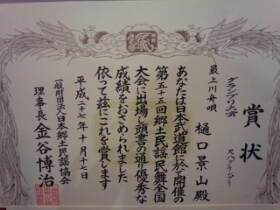 賞状
グランプリ大賞
最上川舟唄
樋口景山殿
あなたは日本武道館に於て開催の
第五十五回郷土民謡民舞全国
大会に出場し頭書の通り優秀な
成績をおさめられました
依って茲にこれを賞します
平成二十七年十月十七日
一般財団法人日本郷土民謡協会
理事長 金谷博治